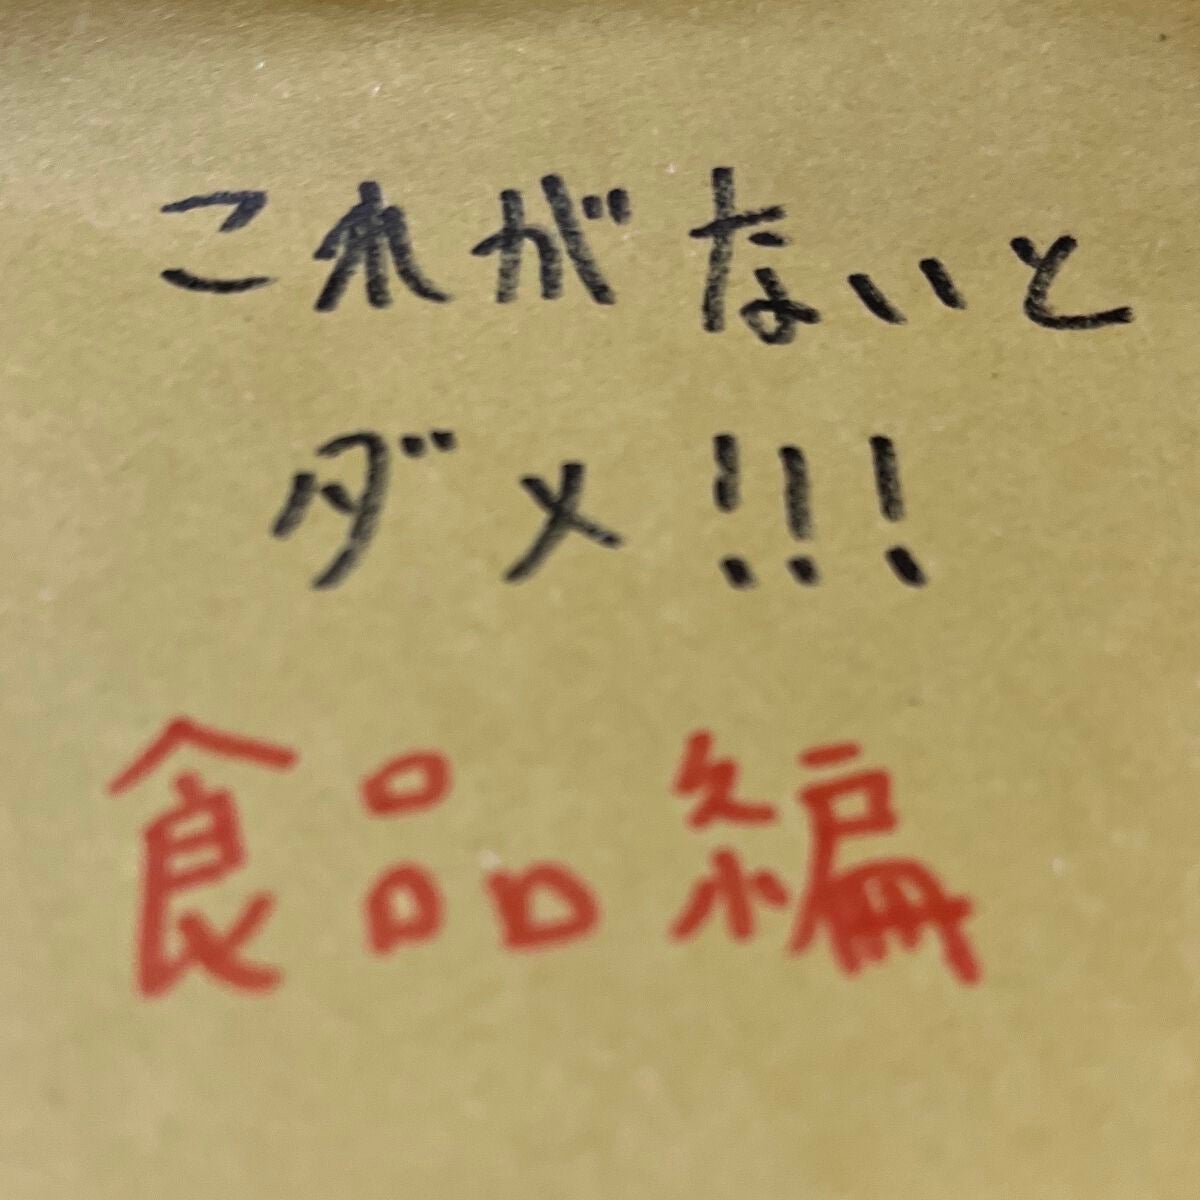 これがないと
ダメ!!!
食品編